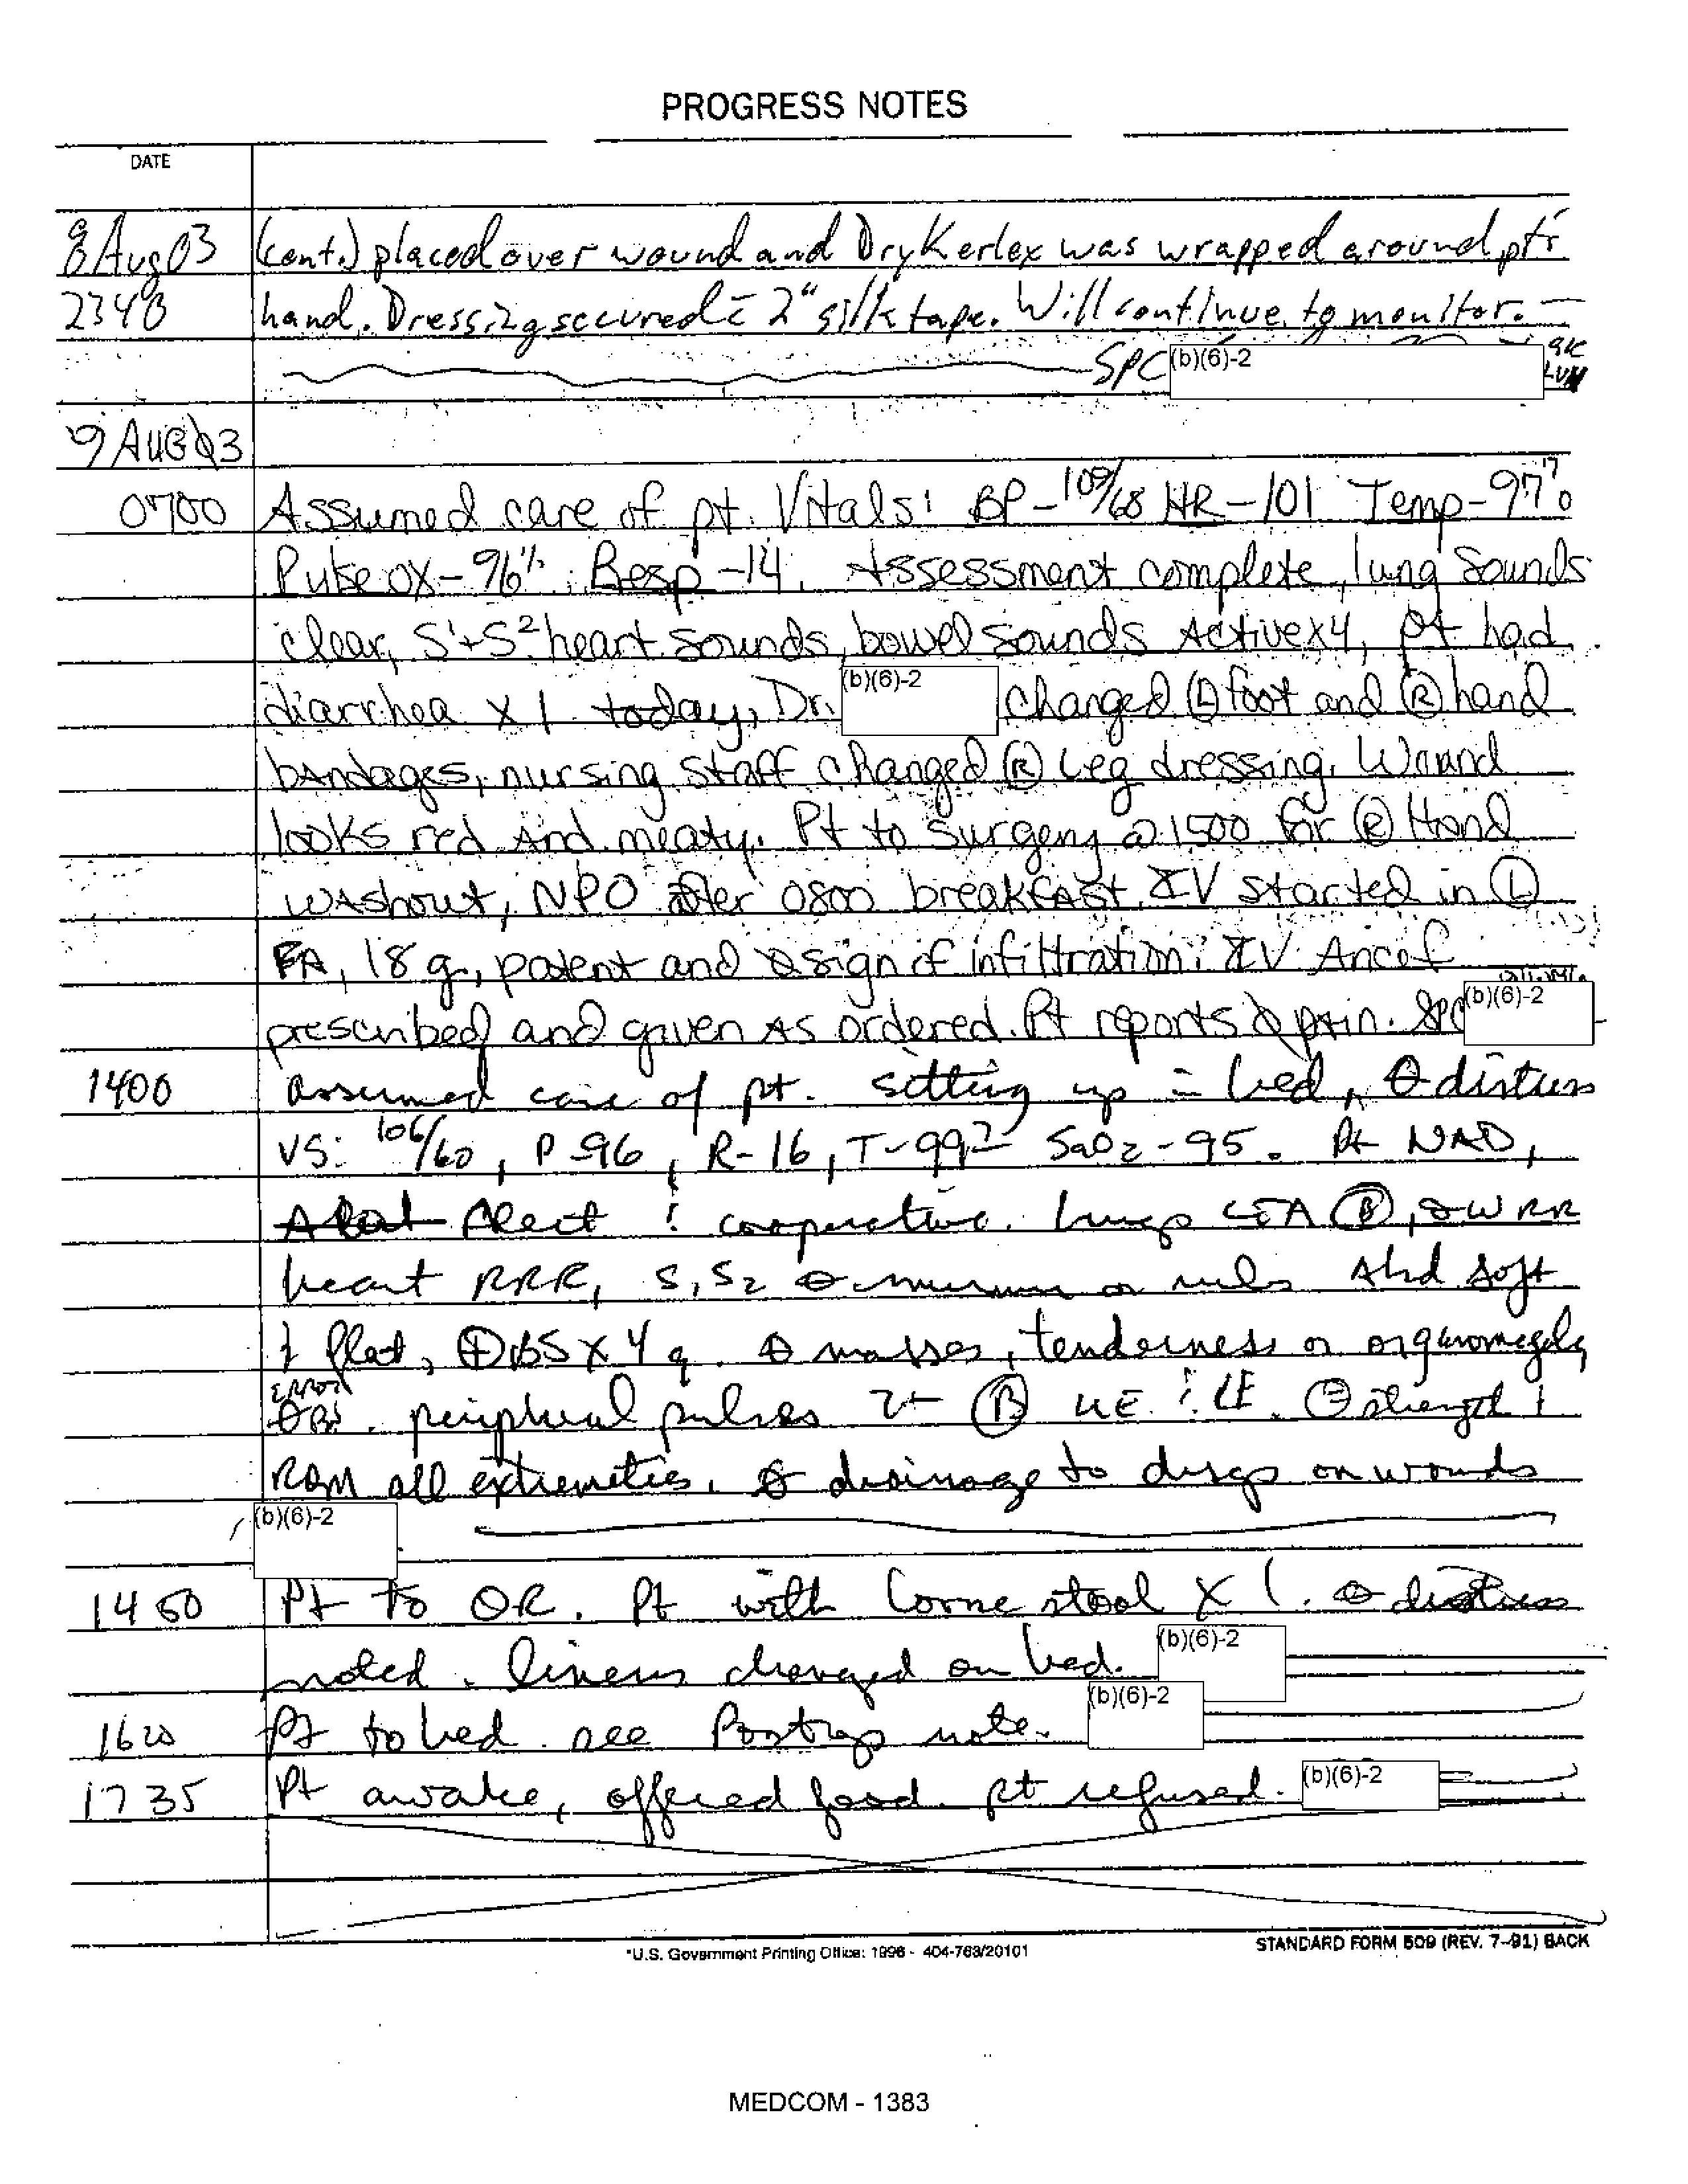 PROGRESS NOTES
DATE
8 Aug 03 (cont.) placed over wound and Dry Kerlex was wrapped around pt's
2340 hand. Dressing secured c̄ 2" silk tape. Will continue to monitor. —
SPC (b)(6)-2
9 AUG 03
0700 Assumed care of pt. Vitals: BP-109/68 HR-101 Temp-97.0
Pulse ox-96% Resp-14. Assessment complete, lung sounds
clear, S1+S2 heart sounds, bowel sounds Active x4, pt had
diarrhea x 1 today, Dr. (b)(6)-2 changed Ⓛ foot and Ⓡ hand
bandages, nursing staff changed Ⓡ Leg dressing. Wound
looks red And meaty. Pt to surgery @ 1500 for Ⓡ Hand
washout, NPO after 0800 breakfast. IV started in Ⓛ
FA, 18 g, patent and ∅ sign of infiltration. IV Ancef
prescribed and given As ordered. Pt reports ∅ pain. SPC (b)(6)-2
1400 assumed care of pt. sitting up in bed, ∅ distress
VS: 106/60, P-96, R-16, T-99² SaO2-95. Pt NAD,
Alert & cooperative. Lungs CTA Ⓑ, ∅ W R R
heart RRR, S1 S2 ∅ murmur or rubs Abd soft
& flat, ⊕ BS x 4 q. ∅ masses, tenderness or organomegaly
ERROR
peripheral pulses 2+ Ⓑ UE & LE. strength &
ROM all extremities. ∅ drainage to dsgs on wounds
(b)(6)-2
1450 Pt to OR. Pt with stool x 1. ∅ distress
noted. linens changed on bed. (b)(6)-2
1620 Pt to bed. see Postop note. (b)(6)-2
1735 Pt awake, offered food. pt refused. (b)(6)-2
*U.S. Government Printing Office: 1996 - 404-763/20101
STANDARD FORM 509 (REV. 7-91) BACK
MEDCOM - 1383